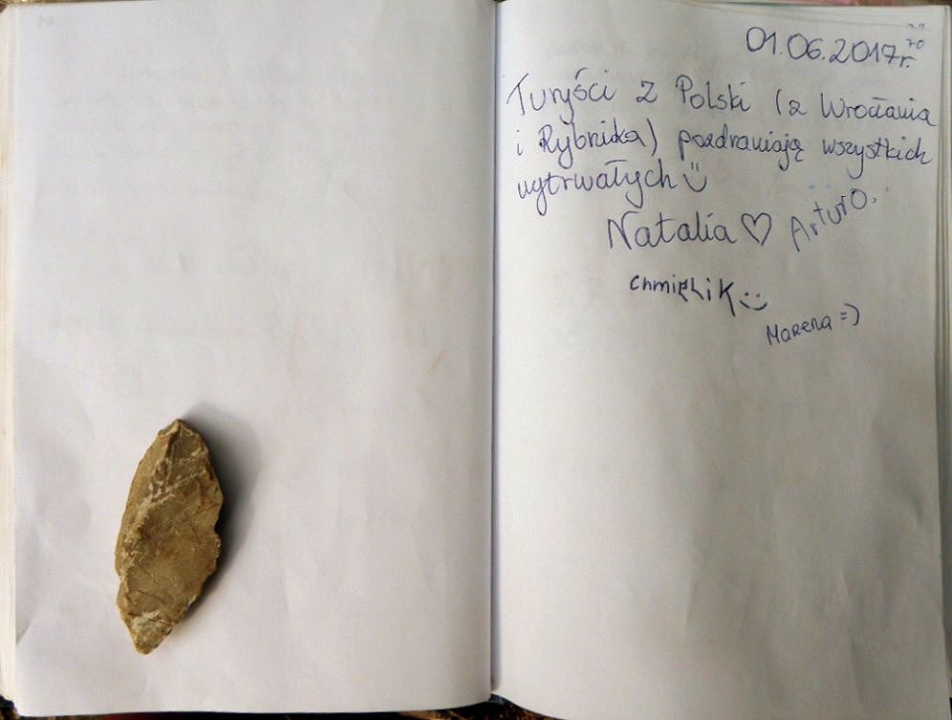 70
01.06.2017r.
Turyści z Polski (z Wrocławia
i Rybnika) pozdrawiają wszystkich
wytrwałych
Natalia ♡ Arturo.
chmielik
Marena =)